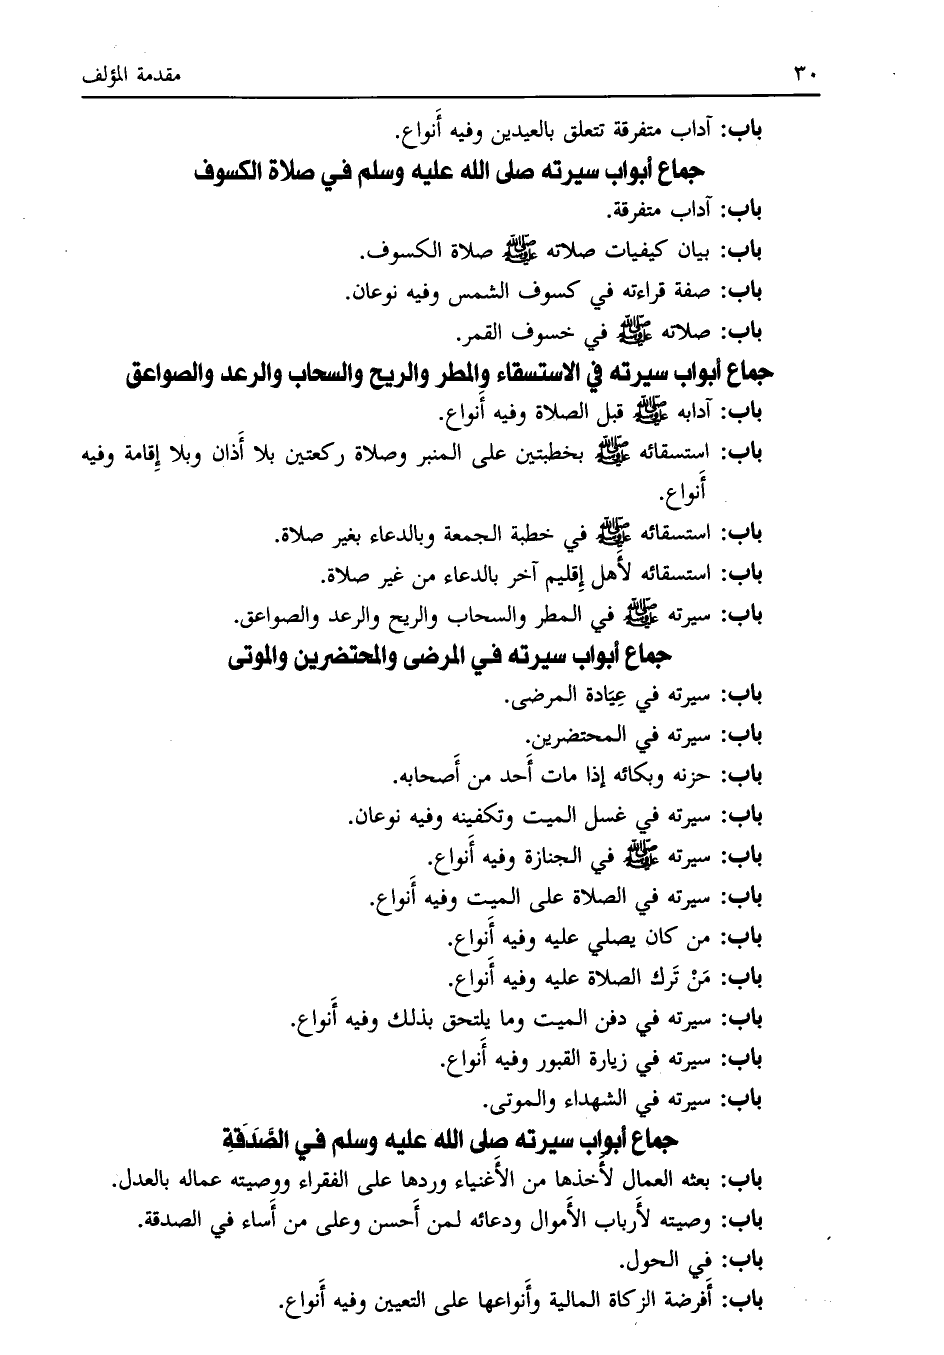 ٣٠ مقدمة المؤلف
باب: آداب متفرقة تتعلق بالعيدين وفيه أَنواع.
جماع أبواب سيرته صلى الله عليه وسلم في صلاة الكسوف
باب: آداب متفرقة.
باب: بيان كيفيات صلاته ﷺ صلاة الكسوف.
باب: صفة قراءته في كسوف الشمس وفيه نوعان.
باب: صلاته ﷺ في خسوف القمر.
جماع أبواب سيرته في الاستسقاء والمطر والريح والسحاب والرعد والصواعق
باب: آدابه ﷺ قبل الصلاة وفيه أَنواع.
باب: استسقائه ﷺ بخطبتين على المنبر وصلاة ركعتين بلا أَذان وبلا إِقامة وفيه
أَنواع.
باب: استسقائه ﷺ في خطبة الجمعة وبالدعاء بغير صلاة.
باب: استسقائه لأَهل إِقليم آخر بالدعاء من غير صلاة.
باب: سيرته ﷺ في المطر والسحاب والريح والرعد والصواعق.
جماع أبواب سيرته في المرضى والمحتضرين والموتى
باب: سيرته في عِيَادة المرضى.
باب: سيرته في المحتضرين.
باب: حزنه وبكائه إذا مات أَحد من أَصحابه.
باب: سيرته في غسل الميت وتكفينه وفيه نوعان.
باب: سيرته ﷺ في الجنازة وفيه أَنواع.
باب: سيرته في الصلاة على الميت وفيه أَنواع.
باب: من كان يصلي عليه وفيه أَنواع.
باب: مَنْ تَرك الصلاة عليه وفيه أَنواع.
باب: سيرته في دفن الميت وما يلتحق بذلك وفيه أَنواع.
باب: سيرته في زيارة القبور وفيه أَنواع.
باب: سيرته في الشهداء والموتى.
جماع أبواب سيرته صلى الله عليه وسلم في الصَّدَقةِ
باب: بعثه العمال لأَخذها من الأَغنياء وردها على الفقراء ووصيته عماله بالعدل.
باب: وصيته لأَرباب الأَموال ودعائه لمن أَحسن وعلى من أَساء في الصدقة.
باب: في الحول.
باب: أَفرضة الزكاة المالية وأَنواعها على التعيين وفيه أَنواع.